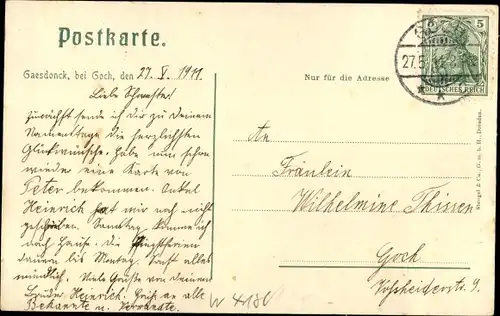 Postkarte.
Gaesdonck, bei Goch, den 27. V. 1911
Nur für die Adresse
27.5.
5 5
DEUTSCHES REICH
Liebe Schwester!
Zunächst sende ich dir zu Deinem
Namenstage die herzlichsten
Glückwünsche. Habe nun schon
wieder eine Karte von
Peter bekommen. Onkel
Heinrich hat mir noch nicht
geschrieben. Samstag komme ich
nach Hause. Die Pfingstferien
dauern bis Montag. Sonst alles
mündlich. Viele Grüße von Deinem
Bruder Heinrich. Gruß an alle
Bekannte u. Verwandte.
An
Fräulein
Wilhelmine Thissen
Goch
Stengel & Co., G. m. b. H., Dresden.